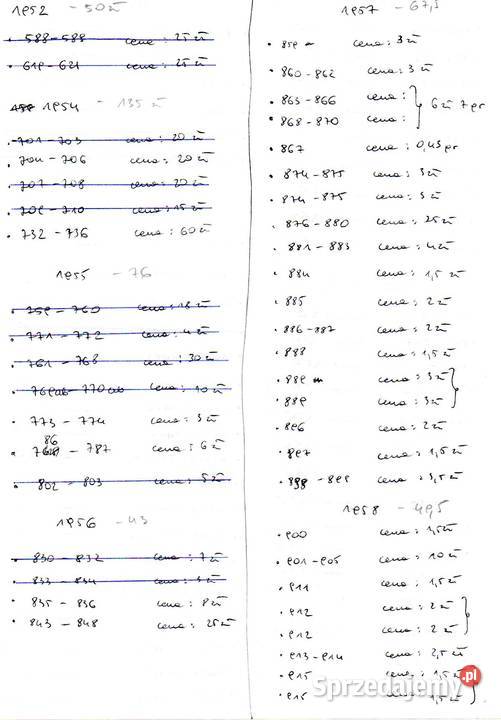 1952 - 50 zł
588 - 589 cena : 25 zł
619 - 621 cena : 25 zł
1954 - 135 zł
701 - 703 cena : 20 zł
704 - 706 cena : 20 zł
707 - 708 cena : 20 zł
709 - 710 cena : 15 zł
732 - 736 cena : 60 zł
1955 - 76
759 - 760 cena : 18 zł
771 - 772 cena : 4 zł
761 - 768 cena : 30 zł
769ab - 770ab cena : 10 zł
773 - 774 cena : 3 zł
86
787 cena : 6 zł
802 - 803 cena : 5 zł
1956 - 43
830 - 832 cena : 7 zł
833 - 834 cena : 3 zł
835 - 836 cena : 8 zł
843 - 848 cena : 25 zł
1957 - 67,5
859 cena : 3 zł
860 - 862 cena : 3 zł
863 - 866 cena :
868 - 870 cena :
6 zł 7 gr
867 cena : 0,43 gr
874 - 875 cena : 3 zł
874 - 875 cena : 3 zł
876 - 880 cena : 25 zł
881 - 883 cena : 4 zł
884 cena : 1,5 zł
885 cena : 2 zł
886 - 887 cena : 2 zł
888 cena : 1,5 zł
889 cena : 3 zł
889 cena : 3 zł
896 cena : 2 zł
897 cena : 1,5 zł
898 - 899 cena : 3,5 zł
1958 - 49,5
900 cena : 1,5 zł
901 - 905 cena : 10 zł
911 cena : 1,5 zł
912 cena : 2 zł
912 cena : 2 zł
913 - 914 cena : 2,5 zł
915 cena : 1,5 zł
915 cena : 1,5 zł
Sprzedajemy.pl